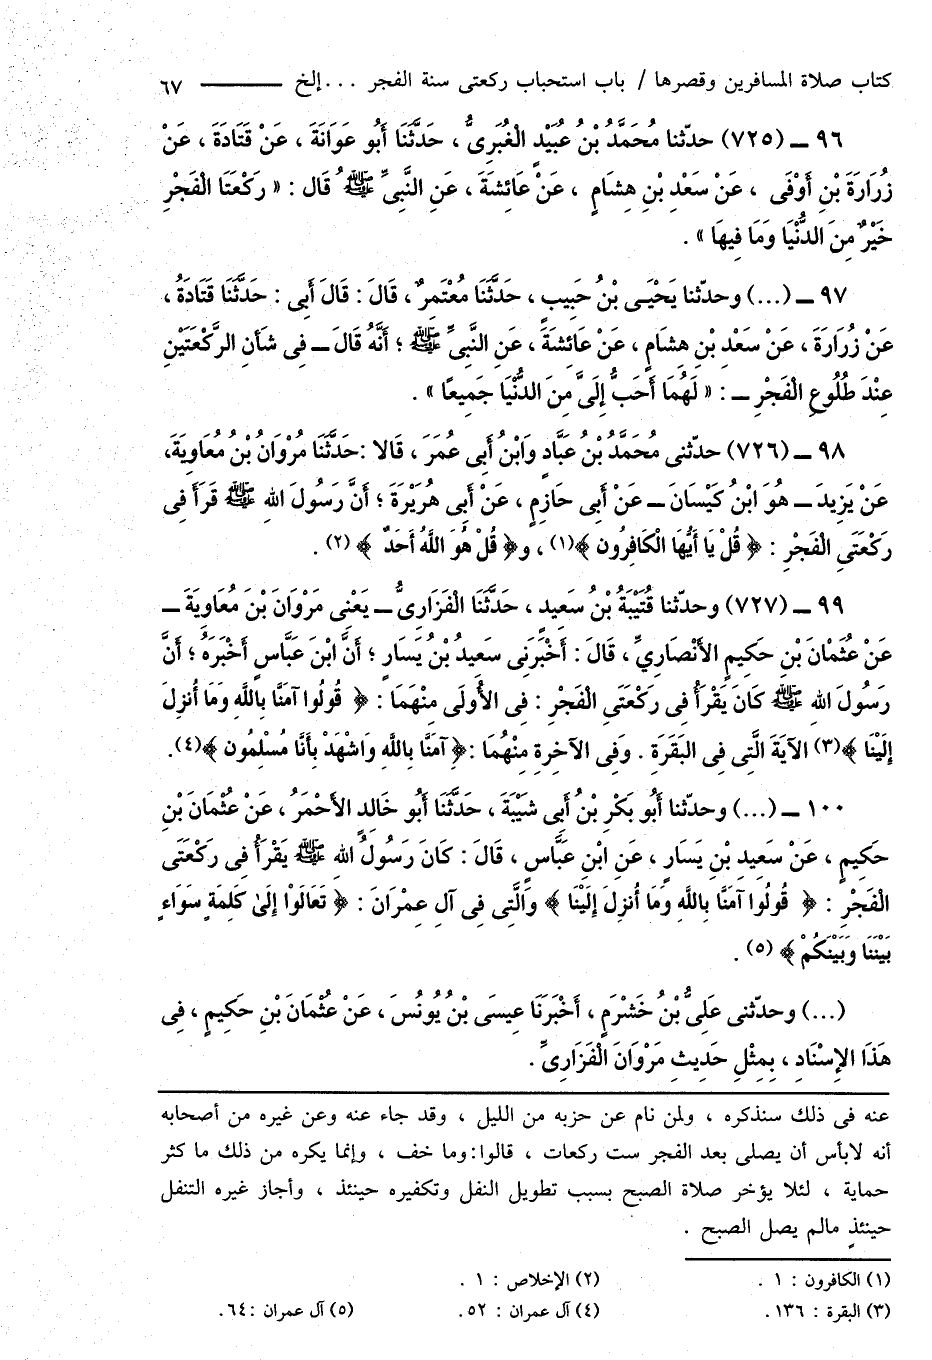 كتاب صلاة المسافرين وقصرها / باب استحباب ركعتى سنة الفجر ...إلخ ــــــ ٦٧
٩٦ ــ (٧٢٥) حدّثنا مُحَمَّدُ بْنُ عُبَيْدٍ الْغُبَرِىُّ ، حَدَّثَنَا أَبُو عَوَانَةَ ، عَنْ قَتَادَةَ ، عَنْ
زُرَارَةَ بْنِ أَوْفَى ، عَنْ سَعْدِ بْنِ هِشَامٍ ، عَنْ عَائِشَةَ ، عَنِ النَّبِىِّ ﷺ قَال : « رَكْعَتَا الْفَجْرِ
خَيْرٌ مِنَ الدُّنْيَا وَمَا فِيهَا » .
٩٧ ــ (...) وحدّثنا يَحْيَىَ بْنُ حَبِيبٍ ، حَدَّثَنَا مُعْتَمِرٌ ، قَالَ : قَالَ أَبِى : حَدَّثَنَا قَتَادَةُ ،
عَنْ زُرَارَةَ ، عَنْ سَعْدِ بْنِ هِشَامٍ ، عَنْ عَائِشَةَ ، عَنِ النَّبِىِّ ﷺ ؛ أَنَّهُ قَالَ ــ فِى شَأنِ الرَّكْعَتَيْنِ
عِنْدَ طُلُوعِ الْفَجْرِ ــ : « لَهُمَا أَحَبُّ إِلَىَّ مِنَ الدُّنْيَا جَمِيعًا » .
٩٨ ــ (٧٢٦) حدّثنى مُحَمَّدُ بْنُ عَبَّادٍ وَابْنُ أَبِى عُمَرَ ، قَالا :حَدَّثَنَا مَرْوَانُ بْنُ مُعَاوِيَةَ،
عَنْ يَزِيدَ ــ هُوَ ابْنُ كَيْسَانَ ــ عَنْ أَبِى حَازِمٍ ، عَنْ أَبِى هُرَيْرَةَ ؛ أَنَّ رَسُولَ اللهِ ﷺ قَرَأَ فِى
رَكْعَتَىِ الْفَجْرِ : ﴿ قُلْ يَا أَيُّهَا الْكَافِرُون ﴾(١) ، و﴿ قُلْ هُوَ اللَّهُ أَحَدٌ ﴾ (٢) .
٩٩ ــ (٧٢٧) وحدّثنا قُتَيْبَةُ بْنُ سَعِيدٍ ، حَدَّثَنَا الْفَزَارِىُّ ــ يَعْنِى مَرْوَانَ بْنَ مُعَاوِيَةَ ــ
عَنْ عُثْمَانَ بْنِ حَكِيمٍ الأَنْصَارِيِّ ، قَالَ : أَخْبَرَنِى سَعِيدُ بْنُ يَسَارٍ ؛ أَنَّ ابْنَ عَبَّاسٍ أَخْبَرَهُ ؛ أَنَّ
رَسُولَ اللهِ ﷺ كَانَ يَقْرَأُ فِى رَكْعَتَىِ الْفَجْرِ : فِى الأُولَى مِنْهُمَا : ﴿ قُولُوا آمَنَّا بِاللَّهِ وَمَا أُنزِلَ
إِلَيْنَا ﴾(٣) الآيَةَ الَّتِى فِى الْبَقَرَةِ . وَفِى الآخِرَةِ مِنْهُمَا :﴿ آمَنَّا بِاللَّهِ وَاشْهَدْ بِأَنَّا مُسْلِمُون ﴾(٤).
١٠٠ ــ (...) وحدّثنا أَبُو بَكْرِ بْنُ أَبِى شَيْبَةَ ، حَدَّثَنَا أَبُو خَالِدٍ الأَحْمَرُ ، عَنْ عُثْمَانَ بْنِ
حَكِيمٍ ، عَنْ سَعِيدِ بْنِ يَسَارٍ ، عَنِ ابْنِ عَبَّاسٍ ، قَالَ : كَانَ رَسُولُ اللهِ ﷺ يَقْرَأُ فِى رَكْعَتَىِ
الْفَجْرِ : ﴿ قُولُوا آمَنَّا بِاللَّهِ وَمَا أُنزِلَ إِلَيْنَا ﴾ وَالَّتِى فِى آلِ عِمْرَانَ : ﴿ تَعَالَوْا إِلَىٰ كَلِمَةٍ سَوَاءٍ
بَيْنَنَا وَبَيْنَكُمْ ﴾ (٥) .
(...) وحدّثنى عَلِىُّ بْنُ خَشْرَمٍ ، أَخْبَرَنَا عِيسَى بْنُ يُونُسَ ، عَنْ عُثْمَانَ بْنِ حَكِيمٍ ، فِى
هَذَا الإِسْنَادِ ، بِمِثْلِ حَدِيثِ مَرْوَانَ الْفَزَارِىِّ .
عنه فى ذلك سنذكره ، ولمن نام عن حزبه من الليل ، وقد جاء عنه وعن غيره من أصحابه
أنه لابأس أن يصلى بعد الفجر ست ركعات ، قالوا:وما خف ، وإنما يكره من ذلك ما كثر
حماية ، لئلا يؤخر صلاة الصبح بسبب تطويل النفل وتكفيره حينئذ ، وأجاز غيره التنفل
حينئذٍ مالم يصل الصبح .
(١) الكافرون : ١ . (٢) الإخلاص : ١ .
(٣) البقرة : ١٣٦. (٤) آل عمران : ٥٢. (٥) آل عمران :٦٤.